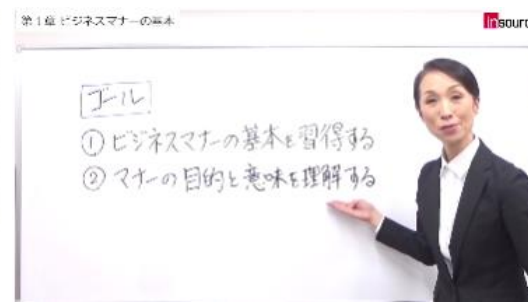 第1章 ビジネスマナーの基本
insourc
ゴール
① ビジネスマナーの基本を習得する
② マナーの目的と意味を理解する